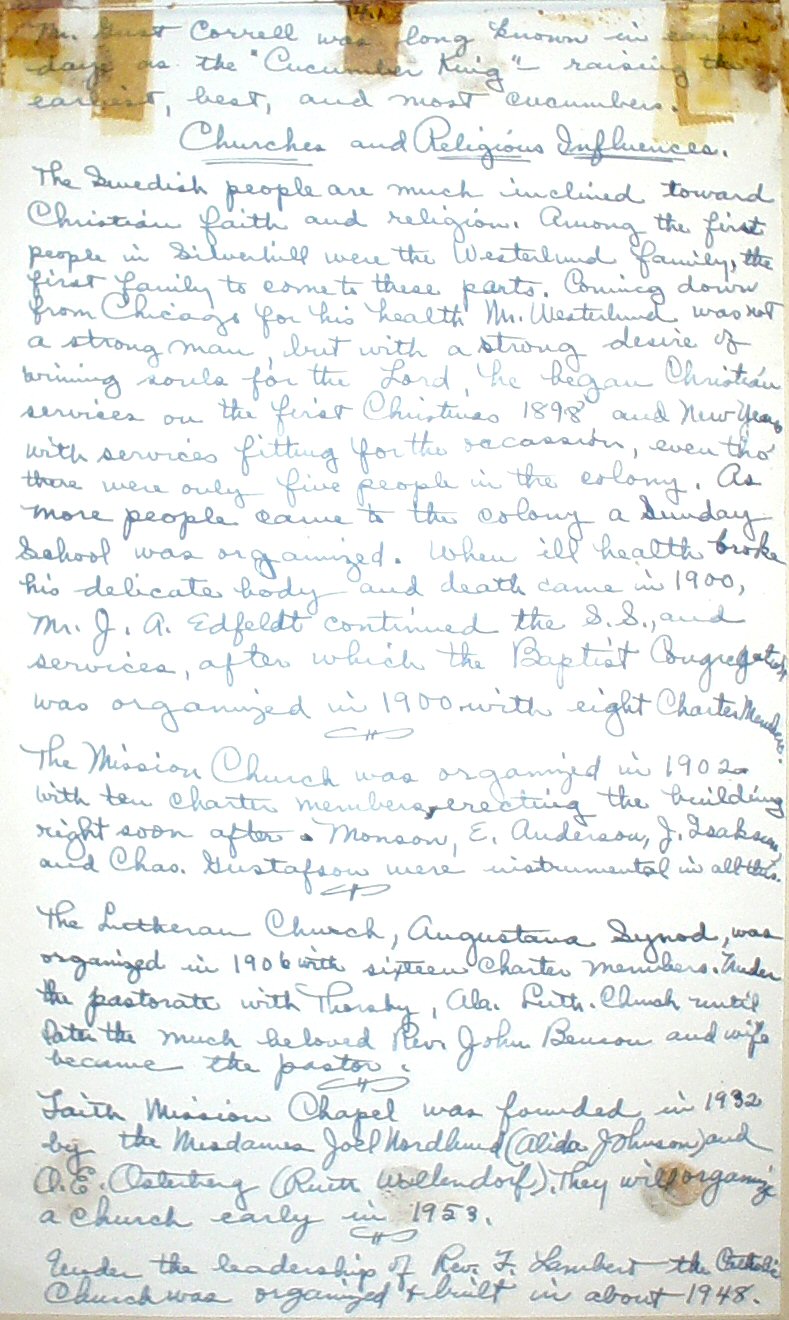 Mr. Gust Correll was long known in earlier
days as the "Cucumber King" - raising the
earliest, best, and most cucumbers.
Churches and Religious Influences.
The Swedish people are much inclined toward
Christian faith and religion. Among the first
people in Silverhill were the Westerlund family, the
first family to come to these parts. Coming down
from Chicago for his health Mr. Westerlund was not
a strong man, but with a strong desire of
winning souls for the Lord, he began Christian
services on the first Christmas 1898 and New Years
with services fitting for the occassion, even tho'
there were only five people in the colony. As
more people came to the colony a Sunday
School was organized. When ill health broke
his delicate body and death came in 1900,
Mr. J. A. Edfeldt continued the S.S., and
services, after which the Baptist Congregation
was organized in 1900 with eight Charter Members.
The Mission Church was organized in 1902
with ten charter members, erecting the building
right soon after. Monson, E. Anderson, J. Isakson,
and Chas. Gustafson were instrumental in all this.
The Lutheran Church, Augustana Synod, was
organized in 1906 with sixteen Charter members. Under
the pastorate with Thorsby, Ala. Luth. Church until
later the much beloved Rev. John Benson and wife
became the pastor.
Faith Mission Chapel was founded in 1932
by the Mesdames Joel Nordlund (Alida Johnson) and
O. E. Osterberg (Ruth Wollendorf). They will organize
a church early in 1953.
Under the leadership of Rev. F. Lambert the Catholic
Church was organized & built in about 1948.